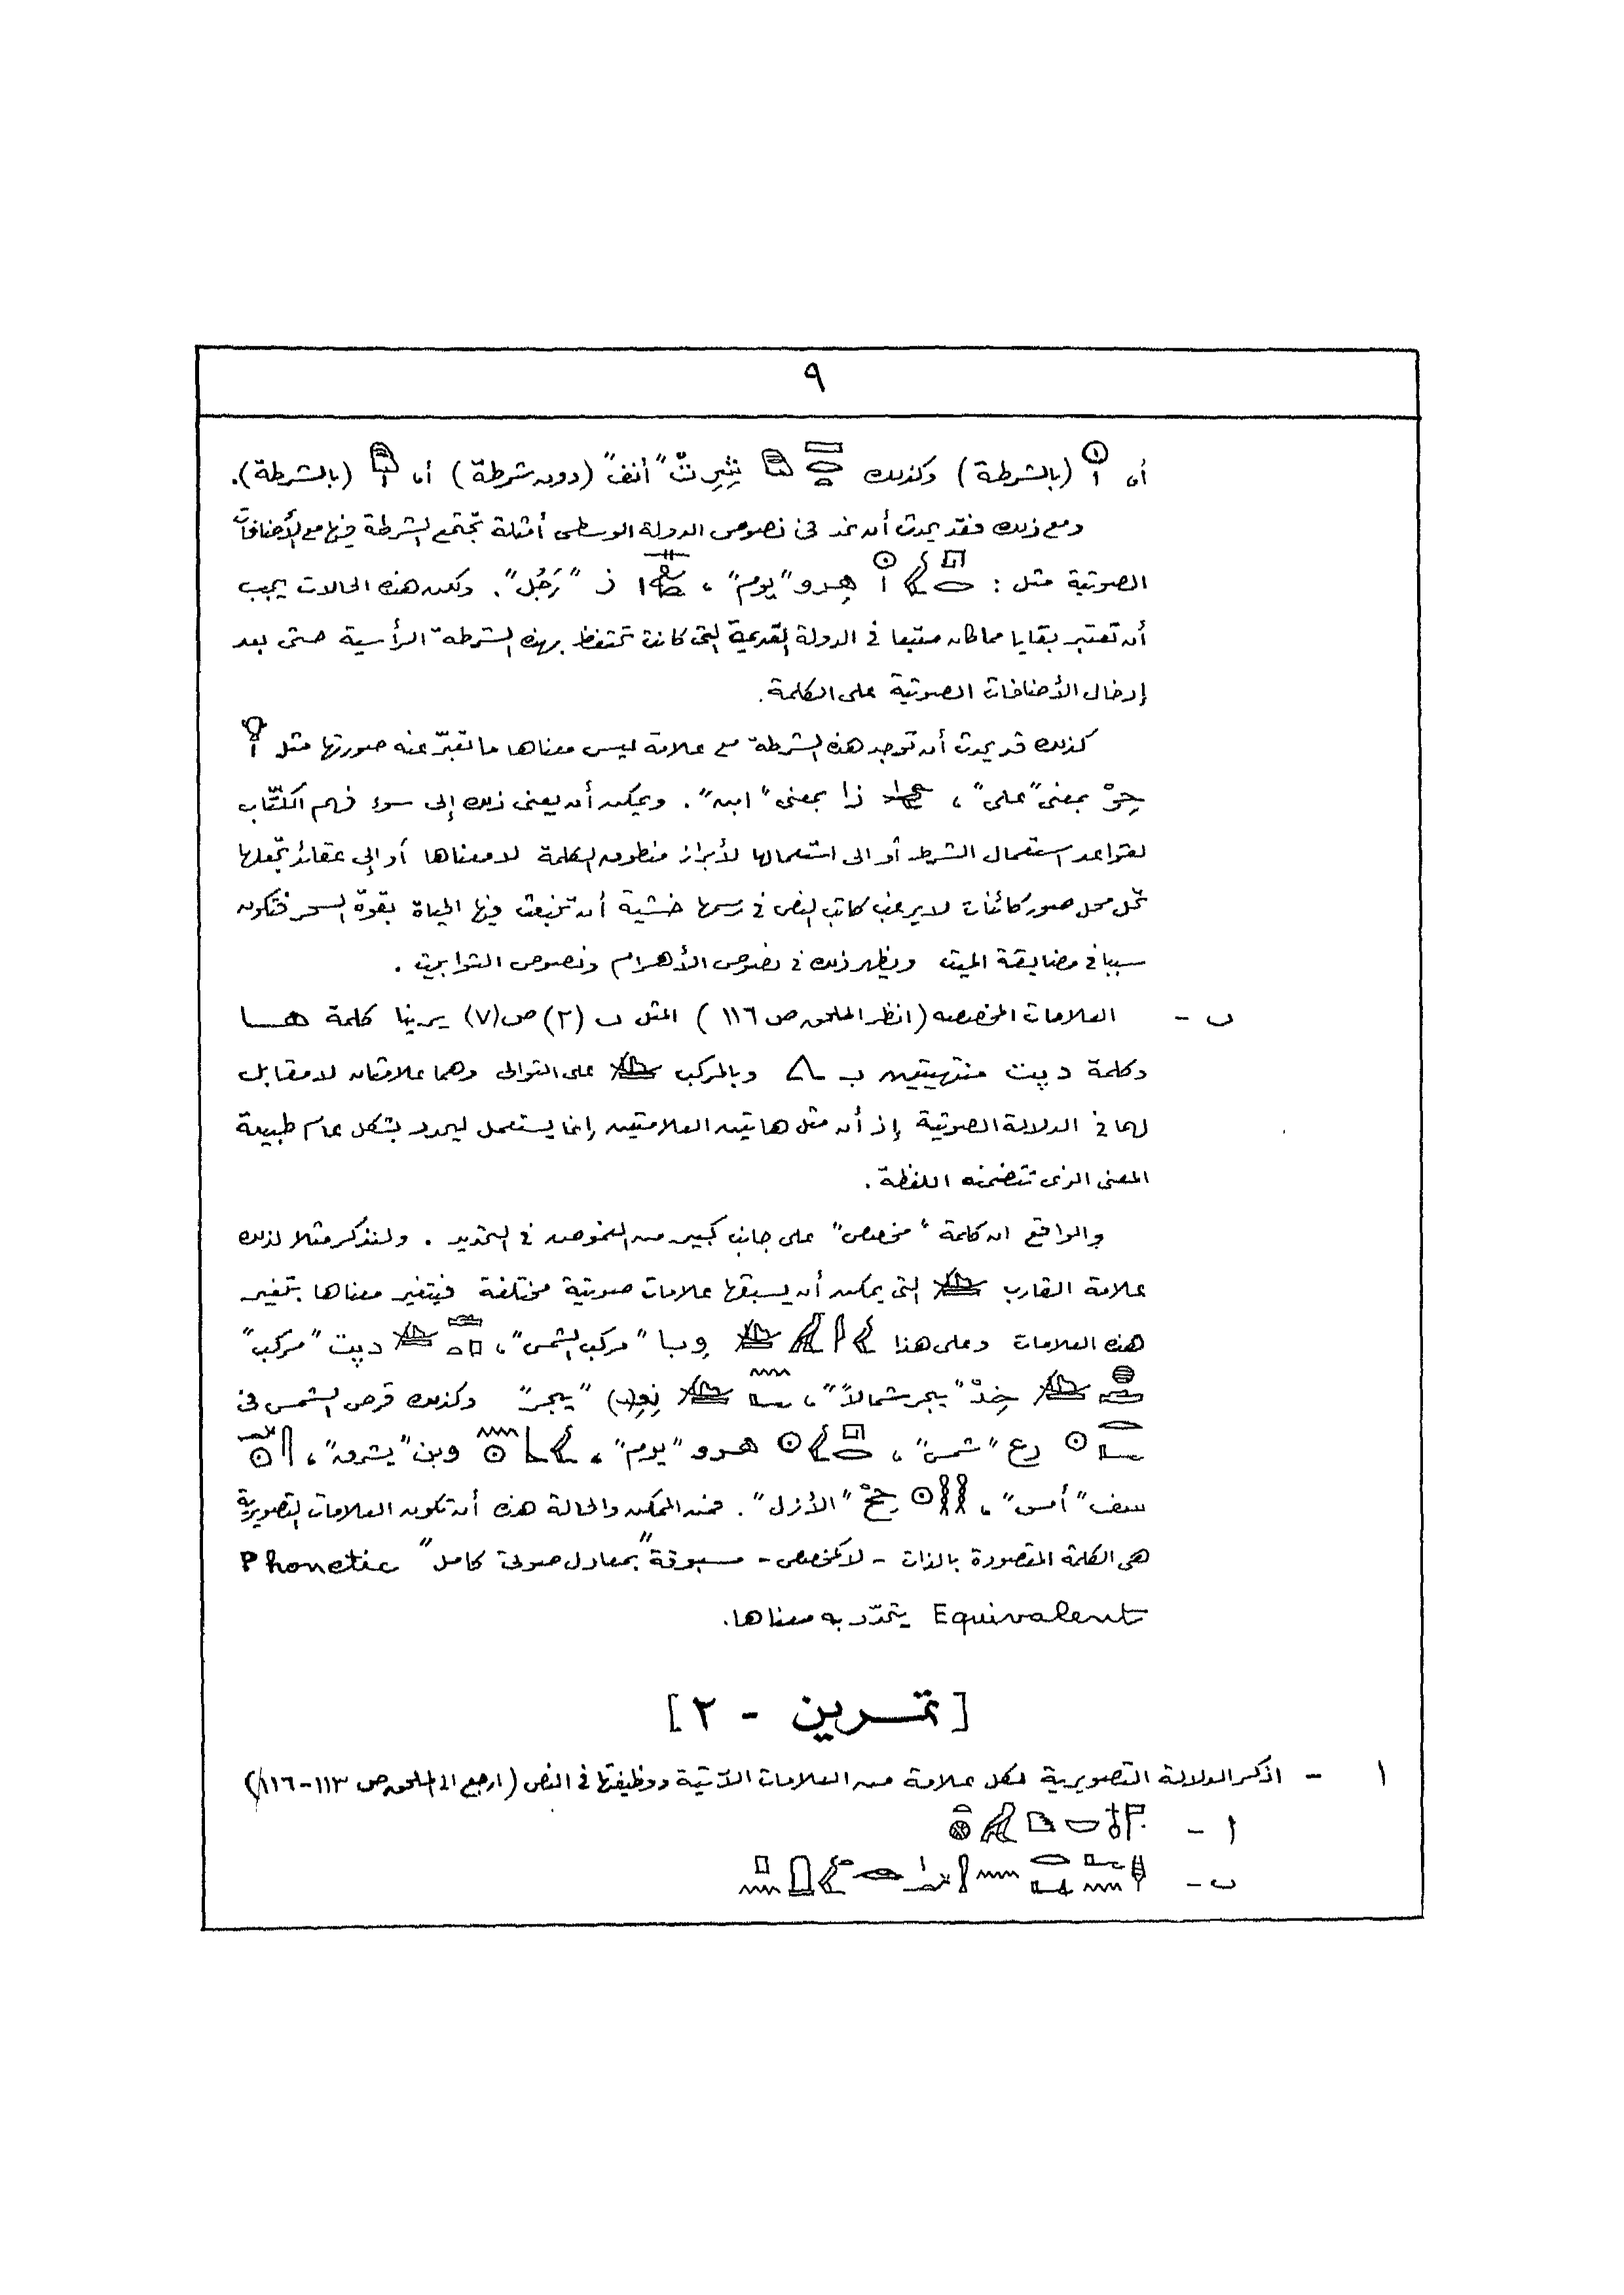 ٩
أو 𓇳𓏤 (بالشرطة) وكذلك 𓈙𓂋𓏏 𓂉 شِرِتْ "أنف" (دون شرطة) أو 𓂉𓏤 (بالشرطة).
ومع ذلك فقد يحدث أن نجد في نصوص الدولة الوسطى أمثلة تجتمع الشرطة فيها مع الأضافات
الصوتية مثل : 𓉔𓂋𓅱𓇳𓏤 هِرو "يوم" ، 𓊃𓀀𓏤 ز "رَجُل". ولكن هذه الحالات يجب
أن تعتبر بقايا مما كان متبعا في الدولة القديمة التي كانت تحتفظ بهذه الشرطة الرأسية حتى بعد
إدخال الأضافات الصوتية على الكلمة.
كذلك قد يحدث أن توجد هذه الشرطة مع علامة ليس معناها ما تعبّر عنه صورتها مثل 𓁷𓏤
حِرْ بمعنى "على" ، 𓅭𓏤 زا بمعنى "ابن". ويمكن أن يعزى ذلك إلى سوء فهم الكتّاب
لقواعد استعمال الشرط أو الى استعمالها لأبراز منطوق الكلمة لا معناها أو إلى عقائد تجعلها
تحل محل صور كائنات لا يرغب كاتب النص في رسمها خشية أن تنبعث فيها الحياة بقوة السحر فتكون
سببا في مضايقة الميت ويظهر ذلك في نصوص الأهرام ونصوص التوابيت .
ب - العلامات المخصصه (انظر الملحق ص ١١٦) المثل ب (٢) ص (٧) يرينا كلمة هـا
وكلمة دپت منتهيتين بـ 𓂻 وبالمركب 𓊞 على التوالى وهما علامتان لا مقابل
لهما في الدلالة الصوتية إذ أن مثل هاتين العلامتين إنما يستعمل ليحدد بشكل عام طبيعة
المعنى الذى تتضمنه اللفظة .
والواقع ان كلمة "مخصص" على جانب كبير من الغموض في التحديد . ولنذكر مثلا لذلك
علامة القارب 𓊞 التي يمكن أن يسبقها علامات صوتية مختلفة فيتغير معناها بتغير
هذه العلامات وعلى هذا 𓅱𓇋𓄿𓊞 وِيا "مركب الشمس" ، 𓂧𓊪𓏏𓊞 دپت "مركب"
𓐍𓂧𓊞 خِدْ "يبحر شمالاً" ، 𓈖𓂝𓊞 نِعِ(ي) "يبحر" وكذلك قرص الشمس في
𓂋𓂝𓇳 رع "شمس" ، 𓉔𓂋𓅱𓇳 هـرو "يوم" ، 𓅱𓃀𓈖𓇳 وبن "يشرق" ، 𓋴𓆑𓇳
سف "أمس" ، 𓎛𓎛𓇳 حِحْ "الأزل". فمن الممكن والحالة هذه أن تكون العلامات التصويرية
هى الكلمة المقصودة بالذات - لا كمخصص - مسبوقة "بمعادل صوتى كامل" Phonetic
Equivalent يتحدّد به معناها.
[تمـرين - ٢]
١ - اذكر الدلالة التصويرية لكل علامة من العلامات الآتية ووظيفتها في النص (ارجع الى الملحق ص ١١٣-١١٦)
أ - 𓊹𓄤𓎟𓈎𓅓𓏏𓊖
ب -